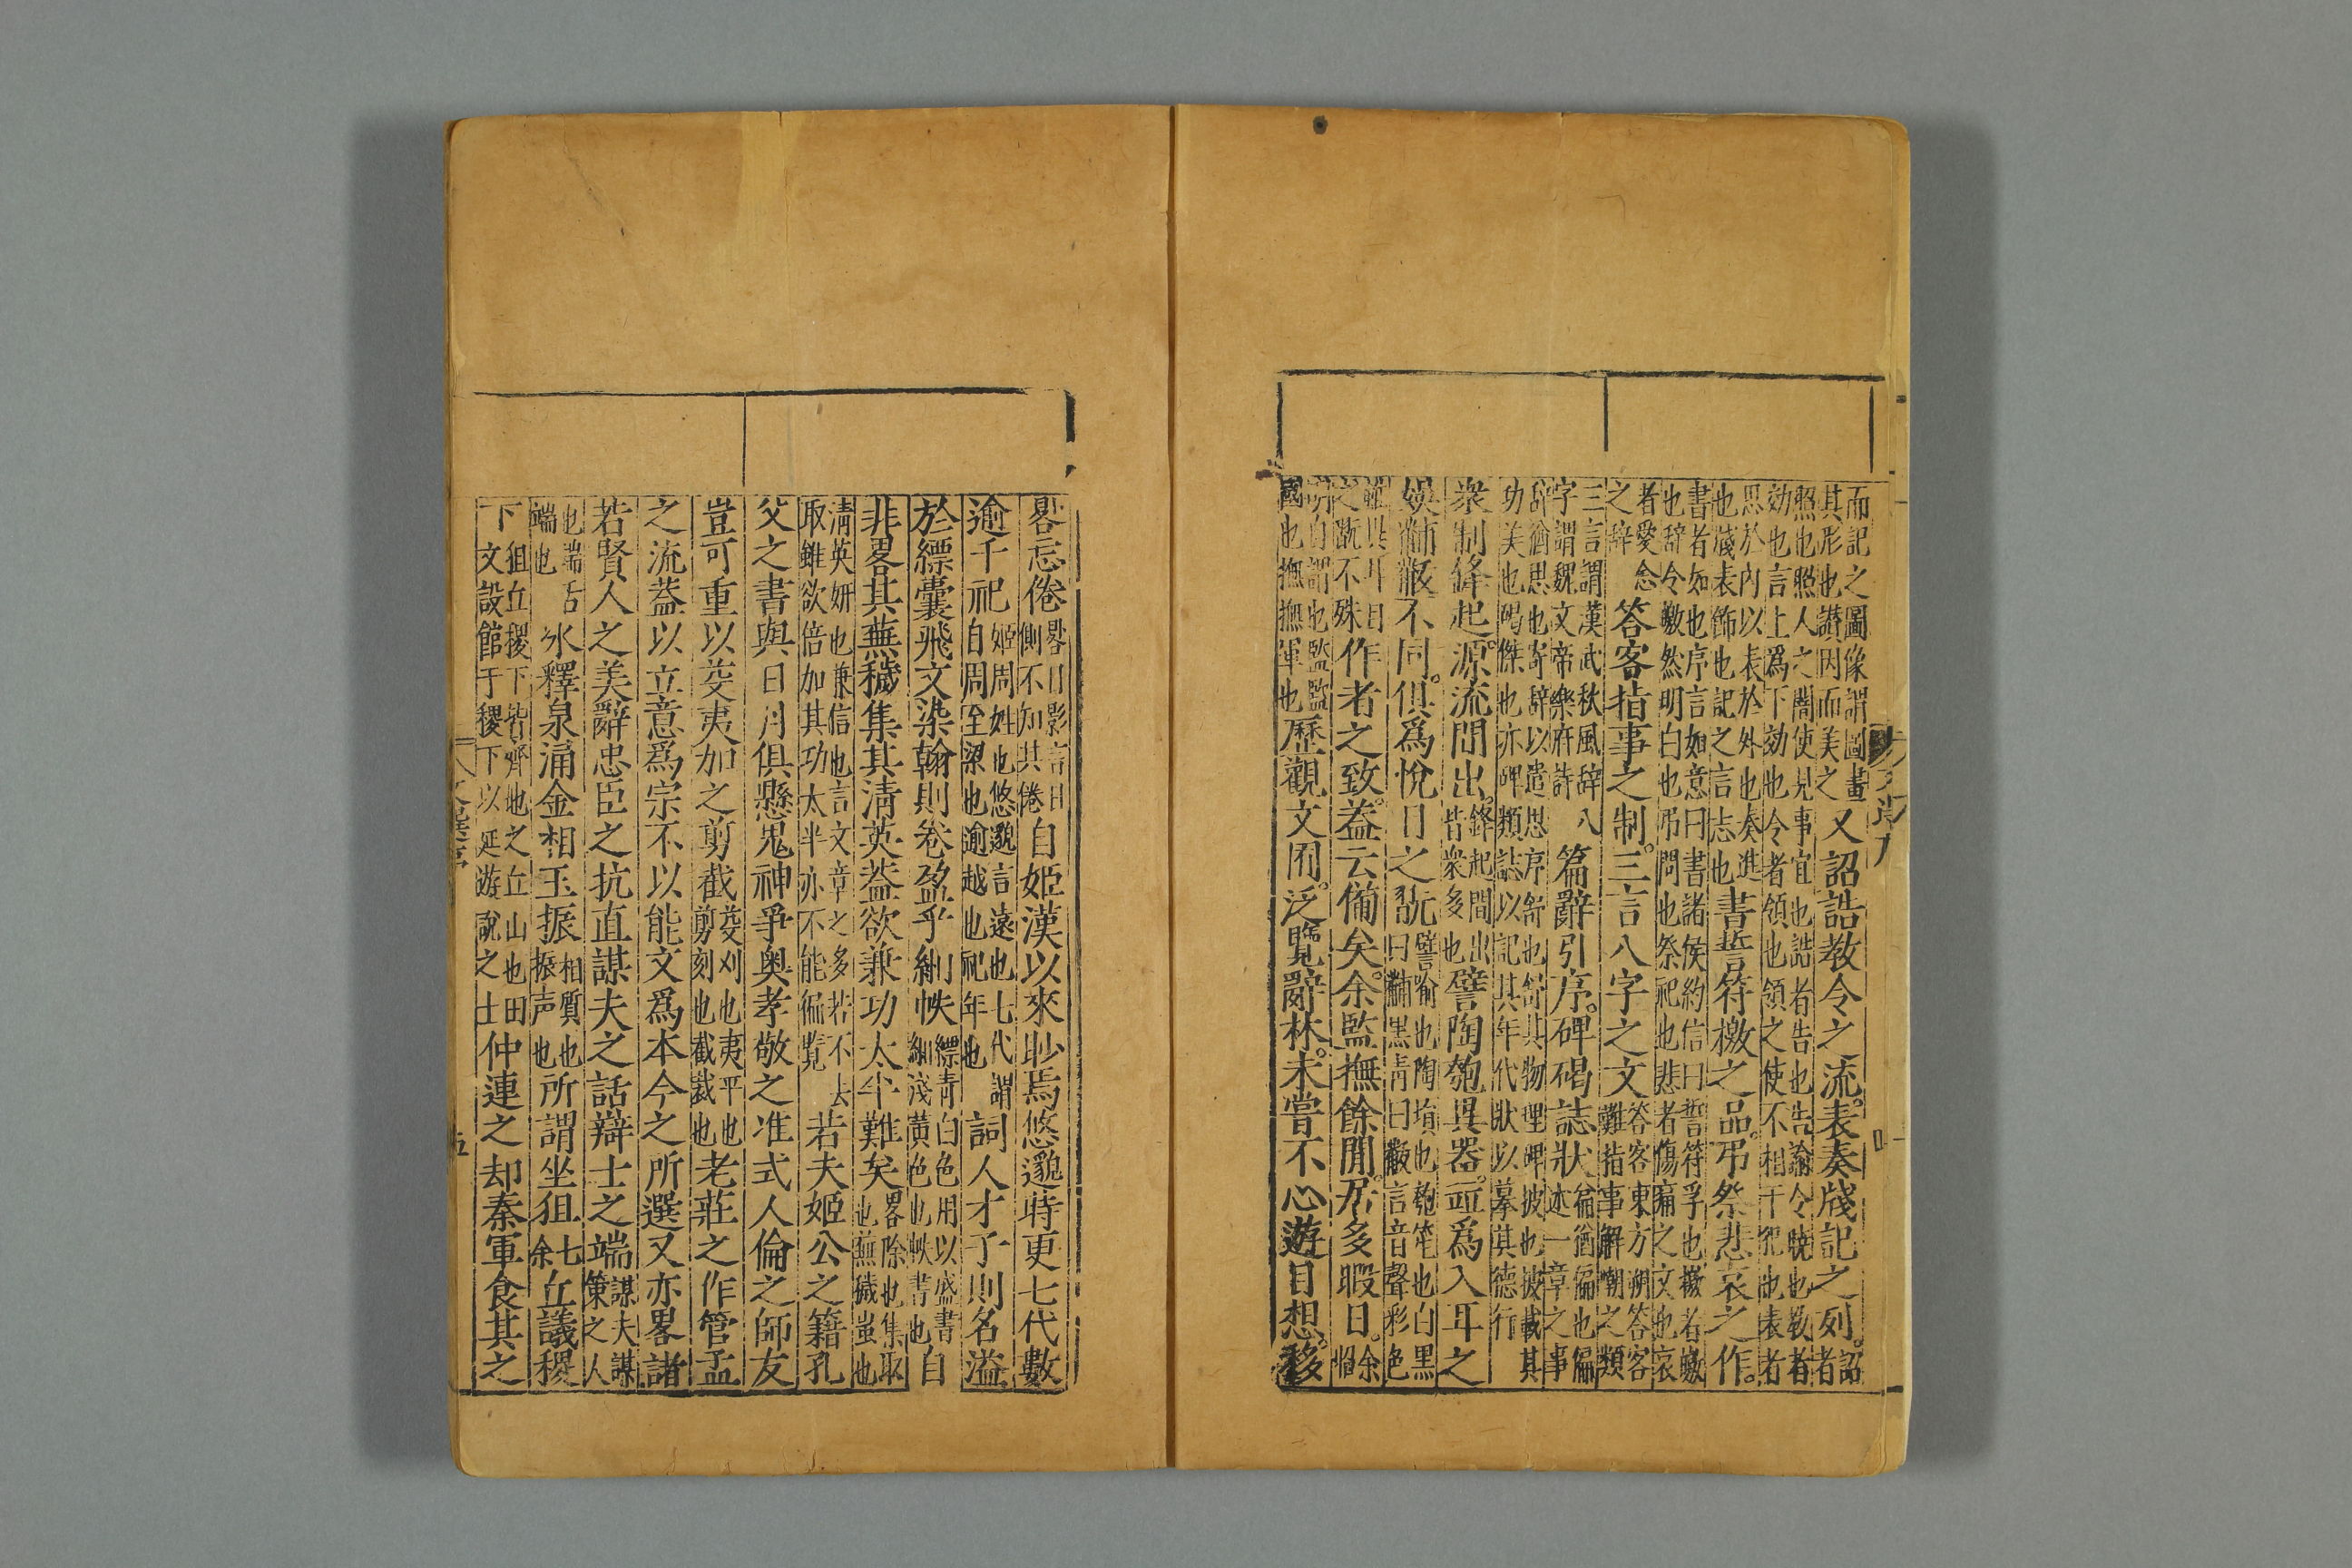 而記之圖像謂圖畫其形也讃因而美之又詔誥教令之流。表奏牋記之列。詔者
照也照人之闇使見事宜也誥者告也告諭令曉也教者効也言上爲下効也令者領也領之使不相干犯也表者
思於内以表於外也奏進也牋表餙也記之言志也書誓符檄之品。弔祭悲哀之作。
書者如也序言如意曰書諸侯約信曰誓符孚也檄者皦也辞令皦然明白也弔問也祭祀也悲者傷痛之文也哀
者愛念之辞答客指事之制。三言八字之文答客東方朔答客難指事解嘲之類
三言謂漢武秋風辞八字謂魏文帝樂府詩篇辭引序。碑碣誌狀篇猶徧也徧述一章之事
辞猶思也寄辞以遣思序舒也舒其物理碑披也披載其功美也碣傑也亦碑類誌以記其年代狀以摹其德行
衆制鋒起。源流間出。鋒起間出皆衆多也譬陶匏異器。並爲入耳之
娛黼黻不同。俱爲悅目之翫譬喻也陶塤也匏笙也白黑曰黼黑青曰黻言音聲彩色
雖異耳目之翫不殊作者之致。葢云備矣。余監撫餘閒。居多暇日。余
明自謂也監監國也撫撫軍也歷觀文囿。泛覽辭林。未嘗不心遊目想。移
晷忘倦晷日影言日側不知其倦自姬漢以來眇焉悠邈時更七代數
逾千祀姬周姓也悠邈言遠也七代謂自周至梁也逾越也祀年也詞人才子則名溢
於縹囊飛文染翰則卷盈乎緗帙縹青白色用以盛書緗淺黄色也帙書也自
非畧其蕪穢集其淸英葢欲兼功太半難矣畧除也集取也蕪穢虽也
淸英妍也兼信也言文章之多若不去取雖欲倍加其功太半亦不能徧覽若夫姬公之籍孔
父之書與日月俱懸鬼神爭奥孝敬之准式人倫之師友
豈可重以芟夷加之剪截芟刈也夷平也剪刻也截裁也老莊之作管孟
之流葢以立意爲宗不以能文爲本今之所選又亦畧諸
若賢人之美辭忠臣之抗直謀夫之話辯士之端謀夫謀策之人
也端舌端也冰釋泉涌金相玉振相質也振声也所謂坐狙丘議稷
下狙丘稷下皆齊地之丘山也田文設館于稷下以延遊說之士仲連之却秦軍食其之
文選序
五